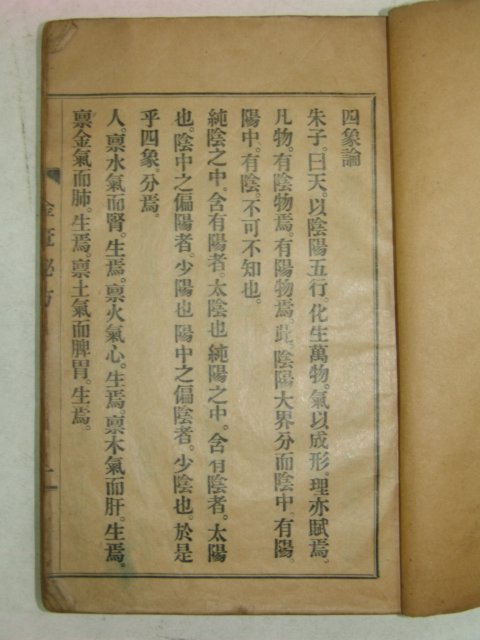 四象論
朱子。曰天。以陰陽五行。化生萬物。氣以成形。理亦賦焉。
凡物。有陰物焉。有陽物焉。此。陰陽大界分而陰中。有陽
陽中。有陰。不可不知也。
純陰之中。含有陽者。太陰也 純陽之中。含有陰者。太陽
也。陰中之偏陽者。少陽也 陽中之偏陰者。少陰也。於是
乎四象。分焉。
人。禀水氣而腎。生焉。禀火氣心。生焉。禀木氣而肝。生焉。
禀金氣而肺。生焉。禀土氣而脾胃。生焉。